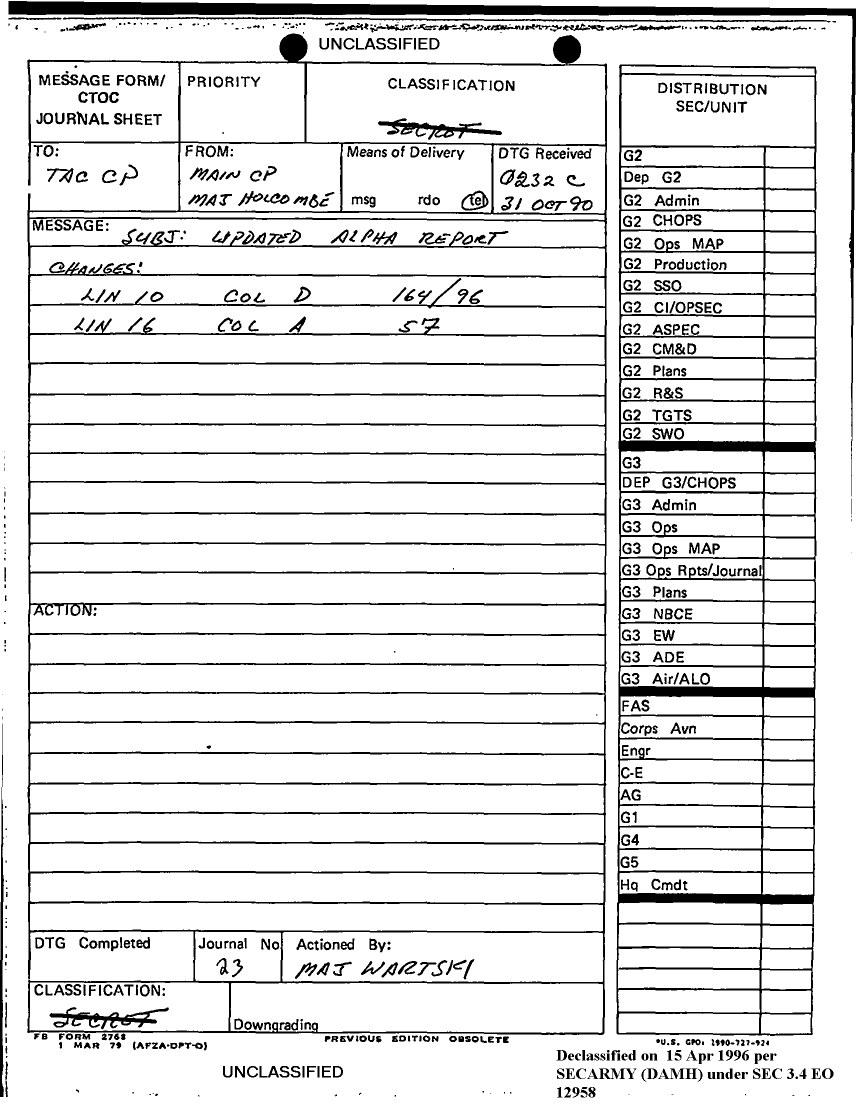 UNCLASSIFIED
MESSAGE FORM/
CTOC
JOURNAL SHEET
PRIORITY
CLASSIFICATION
SECRET
TO:
TAC CP
FROM:
MAIN CP
MAJ HOLCOMBE
Means of Delivery
msg rdo tel
DTG Received
0232 C
31 OCT 90
MESSAGE:
SUBJ: UPDATED ALPHA REPORT
CHANGES:
LIN 10 COL D 164/96
LIN 16 COL A 57
ACTION:
DTG Completed
Journal No
23
Actioned By:
MAJ WARTSKI
CLASSIFICATION:
SECRET
Downgrading
FB FORM 2768
1 MAR 79 (AFZA-DPT-O)
PREVIOUS EDITION OBSOLETE
DISTRIBUTION
SEC/UNIT
G2
Dep G2
G2 Admin
G2 CHOPS
G2 Ops MAP
G2 Production
G2 SSO
G2 CI/OPSEC
G2 ASPEC
G2 CM&D
G2 Plans
G2 R&S
G2 TGTS
G2 SWO
G3
DEP G3/CHOPS
G3 Admin
G3 Ops
G3 Ops MAP
G3 Ops Rpts/Journal
G3 Plans
G3 NBCE
G3 EW
G3 ADE
G3 Air/ALO
FAS
Corps Avn
Engr
C-E
AG
G1
G4
G5
Hq Cmdt
*U.S. GPO: 1990-727-924
UNCLASSIFIED
Declassified on 15 Apr 1996 per
SECARMY (DAMH) under SEC 3.4 EO
12958